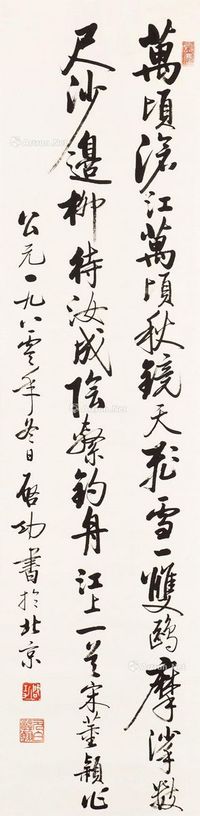 萬頃滄江萬頃秋鏡天飛雪一雙鷗摩挲數
尺沙邊柳待汝成陰繫釣舟 江上一首宋董穎作
公元一九八零年冬日啟功書於北京